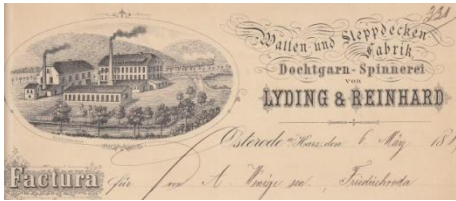 331
Watten und Steppdecken
Fabrik
Dochtgarn-Spinnerei
von
LYDING & REINHARD
Osterode am Harz, den 6. März 18
Factura für A. sen. Friedrichroda